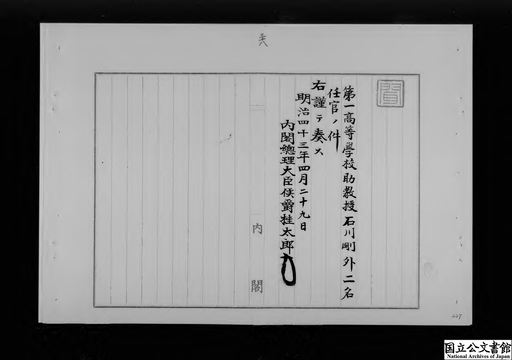 第一高等學校助教授石川剛外二名
任官ノ件
右謹テ奏ス
明治四十三年四月二十九日
内閣總理大臣侯爵桂太郎
内閣
国立公文書館
National Archives of Japan